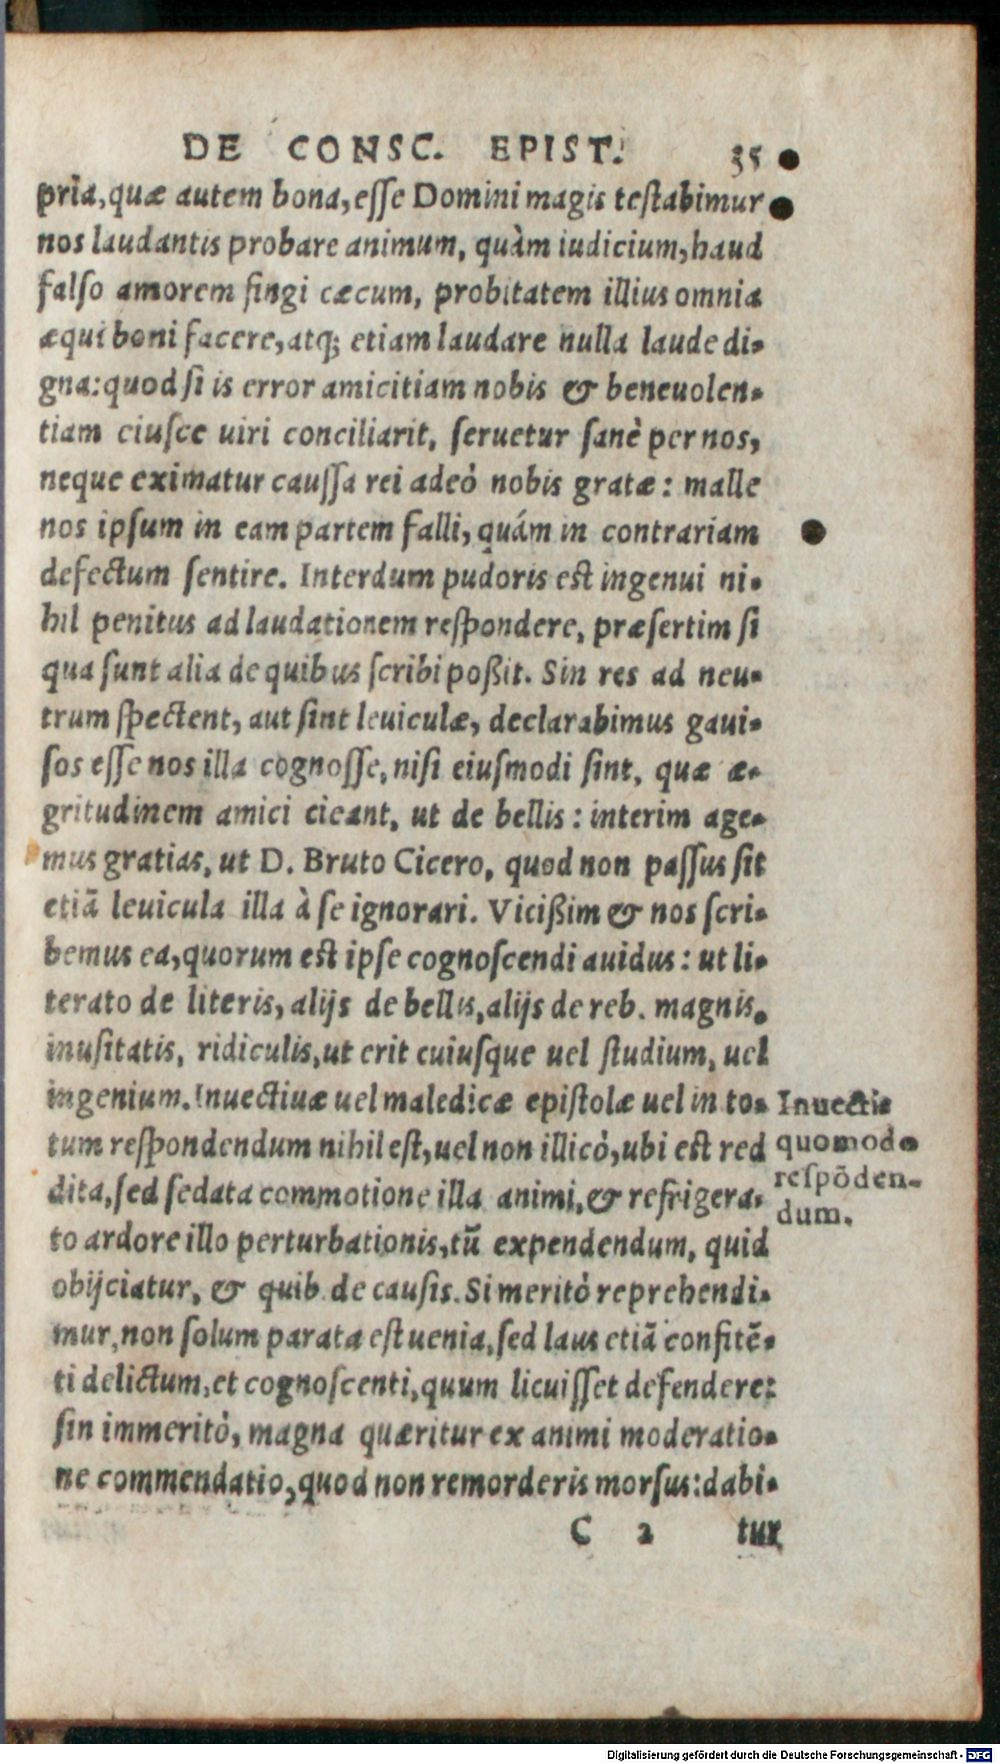 DE CONSC. EPIST. 35
pria, quæ autem bona, esse Domini magis testabimur
nos laudantis probare animum, quàm iudicium, haud
falso amorem fingi cæcum, probitatem illius omnia
æqui boni facere, atq; etiam laudare nulla laude di-
gna: quod si is error amicitiam nobis & beneuolen-
tiam eiusce uiri conciliarit, seruetur sanè per nos,
neque eximatur caussa rei adeò nobis gratæ: malle
nos ipsum in eam partem falli, quám in contrariam
defectum sentire. Interdum pudoris est ingenui ni-
hil penitus ad laudationem respondere, præsertim si
qua sunt alia de quibus scribi poßit. Sin res ad neu-
trum spectent, aut sint leuiculæ, declarabimus gaui-
sos esse nos illa cognosse, nisi eiusmodi sint, quæ æ-
gritudinem amici cieant, ut de bellis: interim age-
mus gratias, ut D. Bruto Cicero, quod non passus sit
etiã leuicula illa à se ignorari. Vicißim & nos scri-
bemus ea, quorum est ipse cognoscendi auidus: ut li-
terato de literis, alijs de bellis, alijs de reb. magnis,
inusitatis, ridiculis, ut erit cuiusque uel studium, uel
ingenium. Inuectiuæ uel maledicæ epistolæ uel in to-
tum respondendum nihil est, uel non illicò, ubi est red
dita, sed sedata commotione illa animi, & refrigera-
to ardore illo perturbationis, tũ expendendum, quid
obijciatur, & quib. de causis. Si meritò reprehendi-
mur, non solum parata est uenia, sed laus etiã confitẽ-
ti delictum, et cognoscenti, quum licuisset defendere:
sin immeritò, magna quæritur ex animi moderatio-
ne commendatio, quod non remorderis morsus: dabi-
C 2 tur
Inuectiæ
quomodo
respõden-
dum.
Digitalisierung gefördert durch die Deutsche Forschungsgemeinschaft - DFG